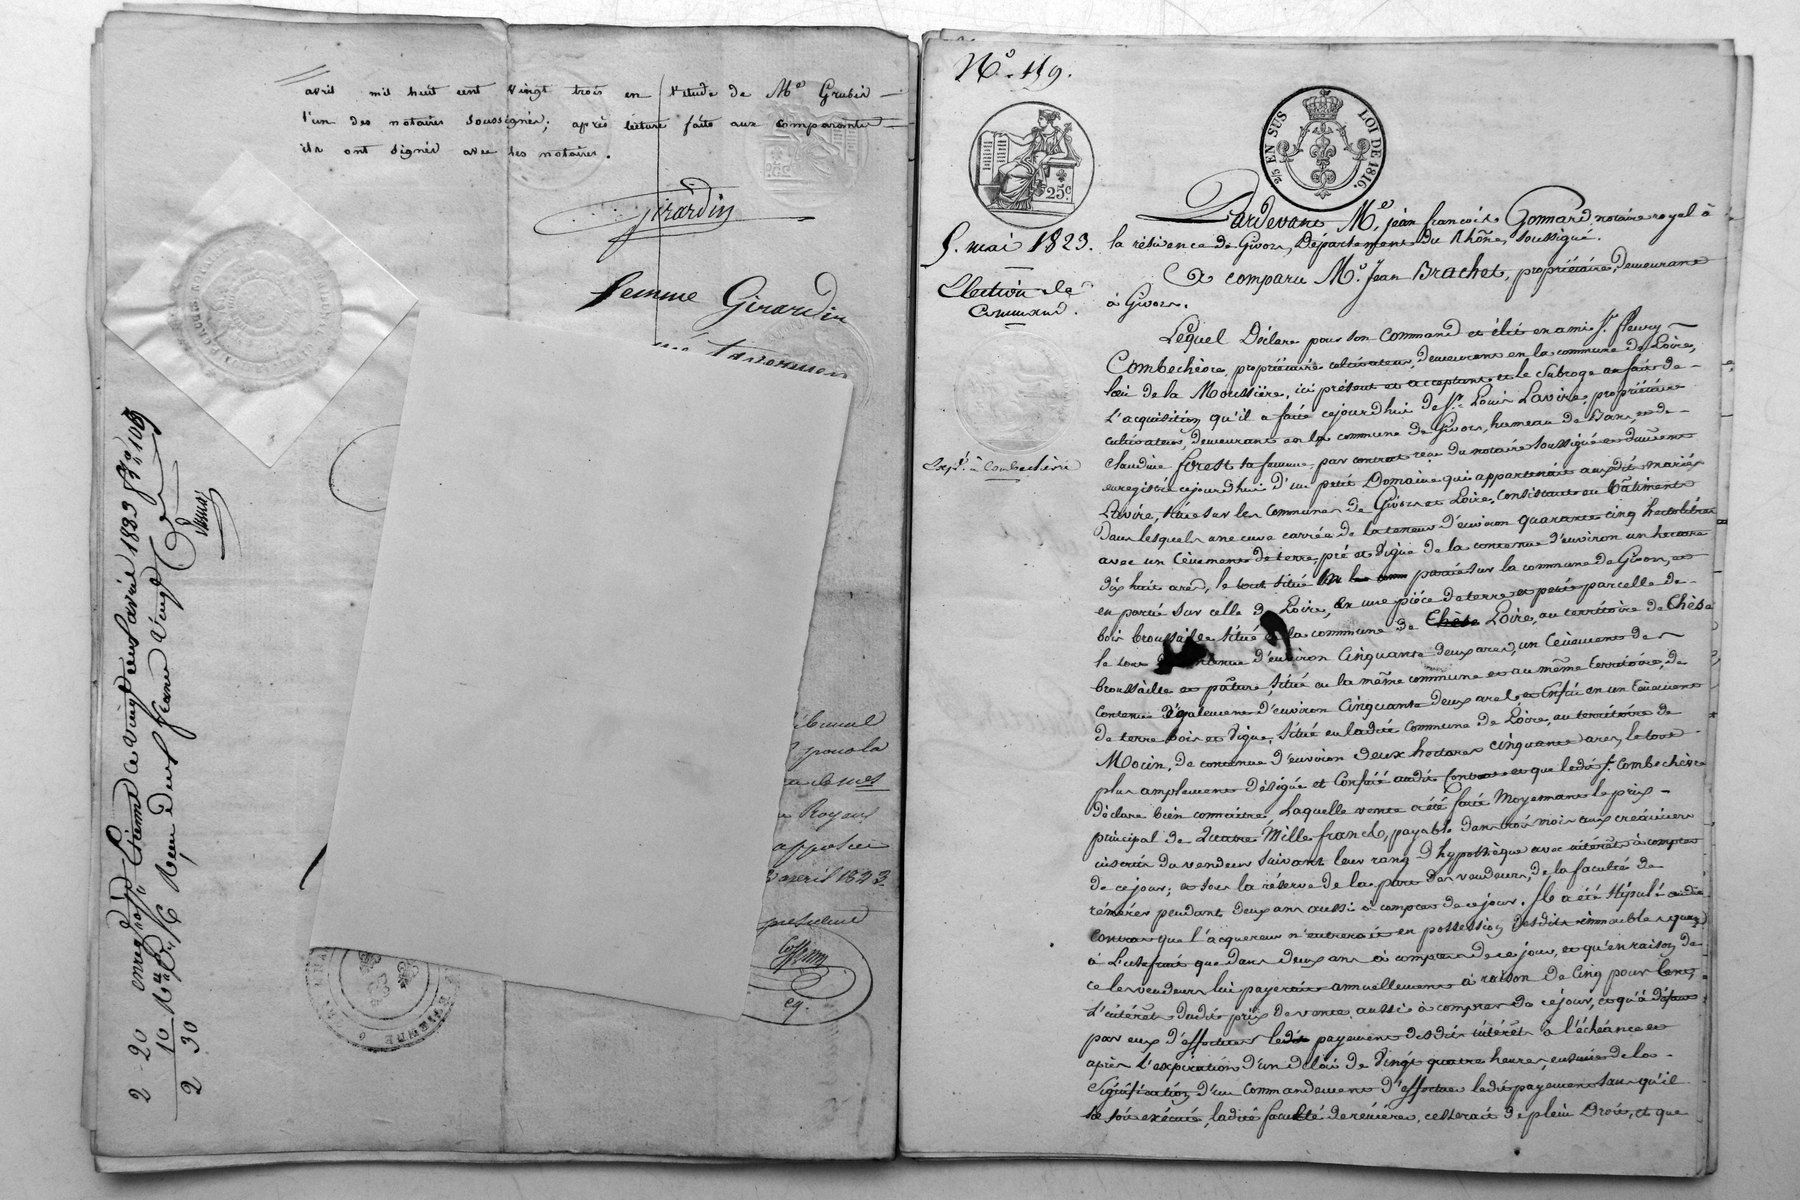 avril mil huit cent vingt trois en l'etude de Me Grubis
l'un des notaires soussignés; après lecture faite aux comparants
ils ont signés avec les notaires.
Girardin
femme Girardin
tribunal
pour la
Royaux
apposée
avril 1823
president
enregistré à St Etienne le vingt cinq avril 1823 fo 109
Reçu deux francs vingt
2-20
10
2 30
No. 119.
25c
2/5 EN SUS LOI DE 1816.
5. mai 1823.
Election de
Command.
Expon à Combechève
Pardevant Me. jean françois Gonnard, notaire royal à
la résidence de Givors, Département du Rhône, soussigné.
A comparu Mr. Jean Brachet, propriétaire, demeurant
à Givors.
Lequel Déclare pour son Command et élit en ami Sr. fleury
Combechève, propriétaire cultivateur, demeurant en la commune de Loire,
lieu de la Moussière, ici présent et acceptant et le subroge en fait de
l'acquisition qu'il a faite cejourd'hui de Sr. Louis Lavire, propriétaire
cultivateur, demeurant en la commune de Givors, hameau de Bans, et de
claudine forest sa femme, par contrat reçu du notaire soussigné et dûment
enregistré cejourd'hui d'un petit Domaine qui appartenait auxdits mariés
Lavire, situé sur les Communes de Givors et Loire, consistant en bâtiments
dans lesquels une cuve carrée de la teneur d'environ quarante cinq hectolitres
avec un tènement de terre, pré et vigne de la contenue d'environ un hectare
dix huit ares, le tout situé partie sur la commune de Givors, et
en partie sur celle de Loire, en une pièce de terre et petit parcelle de
bois broussaille situé la commune de Loire, au territoire de Chèse
le tout contenue d'environ Cinquante deux ares, un tènement de
broussaille et pâture, situé en la même commune et au même territoire, de
contenue également d'environ Cinquante deux ares, et Enfin en un tènement
de terre bois et vigne, situé en ladite Commune de Loire, au territoire de
Morin, de contenue d'environ deux hectares cinquante ares, le tout
plus amplement désigné et Confiné audit Contrat et que ledit Sr. Combechève
déclare bien connaitre, Laquelle vente a été faite moyennant le prix
principal de Quatre Mille francs, payable dans trois mois aux créanciers
inscrits du vendeur suivant leur rang d'hypothèque avec intérêts à compter
de ce jour; et sous la réserve de la part des vendeurs, de la faculté de
réméré pendant deux ans aussi à compter de ce jour. Il a été stipulé audit
contrat que l'acquereur n'entrerait en possession desdits immeubles quant
à l'usufruit que dans deux ans à compter de ce jour, et qu'en raison de
ce les vendeurs lui payeraient annuellement à raison de cinq pour Cent,
l'intérêt dudit prix de vente, aussi à compter de ce jour, et qu'à défaut
par eux d'effectuer ledit payement desdits intérêts à l'échéance et
après l'expiration d'un délai de vingt quatre heures, ensuite de la
Signification d'un Commandement d'effectuer ledit payement sans qu'il
se soit exécuté, ladite faculté de réméré, cesserait de plein Droit, et que